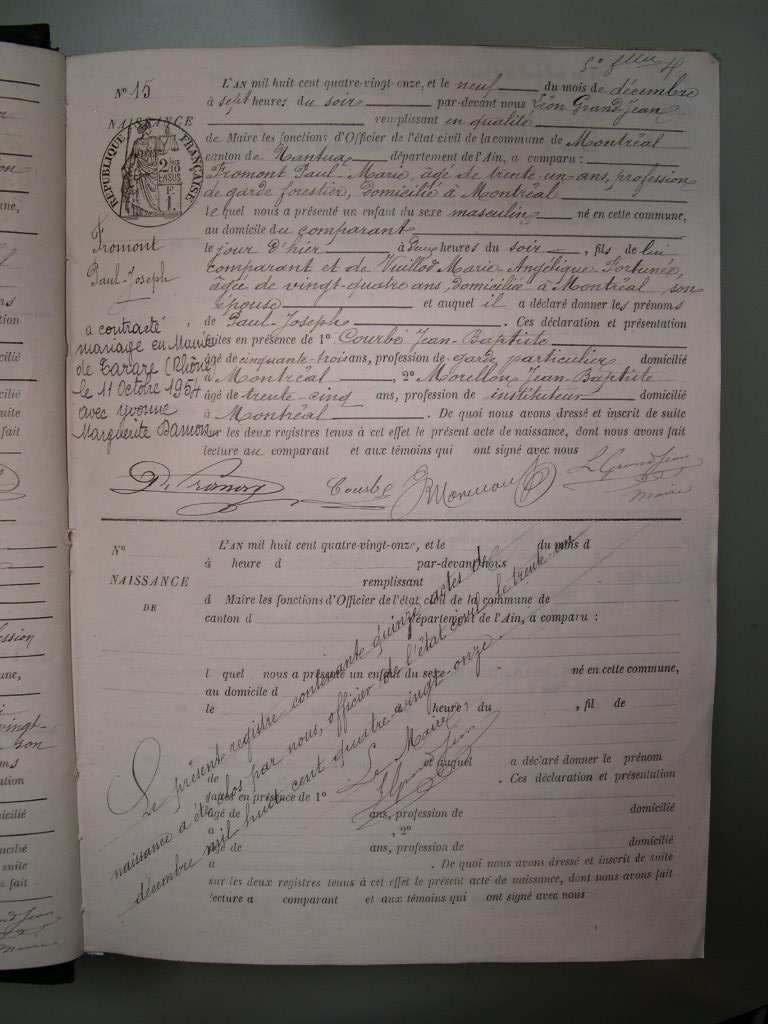 5e
4
N° 15
NAISSANCE
RÉPUBLIQUE FRANÇAISE
Fromont
Paul-Joseph
a contracté
mariage en Mairie
de Tarare (Rhône)
le 11 Octobre 1954
avec Yvonne
Marguerite
L'AN mil huit cent quatre-vingt-onze, et le neuf du mois de décembre
à sept heures du soir par-devant nous Léon GrandJean
remplissant en qualité
de Maire les fonctions d'Officier de l'état civil de la commune de Montréal
canton de Nantua département de l'Ain, a comparu :
Fromont Paul-Marie, âgé de trente-un ans, profession
de garde forestier, domicilié à Montréal
lequel nous a présenté un enfant du sexe masculin né en cette commune,
au domicile du comparant
le jour d'hier à deux heures du soir, fils de lui
comparant et de Vuillod Marie Angélique Fortunée,
âgée de vingt-quatre ans, domiciliée à Montréal son
épouse et auquel il a déclaré donner les prénoms
de Paul-Joseph. Ces déclaration et présentation
faites en présence de 1° Courbe Jean-Baptiste
âgé de cinquante-trois ans, profession de garde particulier domicilié
à Montréal, 2° Morellon Jean-Baptiste
âgé de trente-cinq ans, profession de instituteur domicilié
à Montréal. De quoi nous avons dressé et inscrit de suite
sur les deux registres tenus à cet effet le présent acte de naissance, dont nous avons fait
lecture au comparant et aux témoins qui ont signé avec nous
Courbe
L GrandJean
Maire
N°
NAISSANCE
DE
L'AN mil huit cent quatre-vingt-onze, et le du mois d
à heure d par-devant nous
remplissant
d Maire les fonctions d'Officier de l'état civil de la commune de
canton d département de l'Ain, a comparu :
l quel nous a présenté un enfant du sexe né en cette commune,
au domicile d
le à heure du , fil de
et auquel a déclaré donner le prénom
de . Ces déclaration et présentation
faites en présence de 1°
âgé de ans, profession de domicilié
à , 2°
âgé de ans, profession de domicilié
à . De quoi nous avons dressé et inscrit de suite
sur les deux registres tenus à cet effet le présent acte de naissance, dont nous avons fait
lecture a comparant et aux témoins qui ont signé avec nous
Le présente registre contenante quinze actes de
naissance a été clos par nous, officier de l'état civil le trente-un
décembre mil huit cent quatre vingt-onze.
Le Maire
LGrandJean